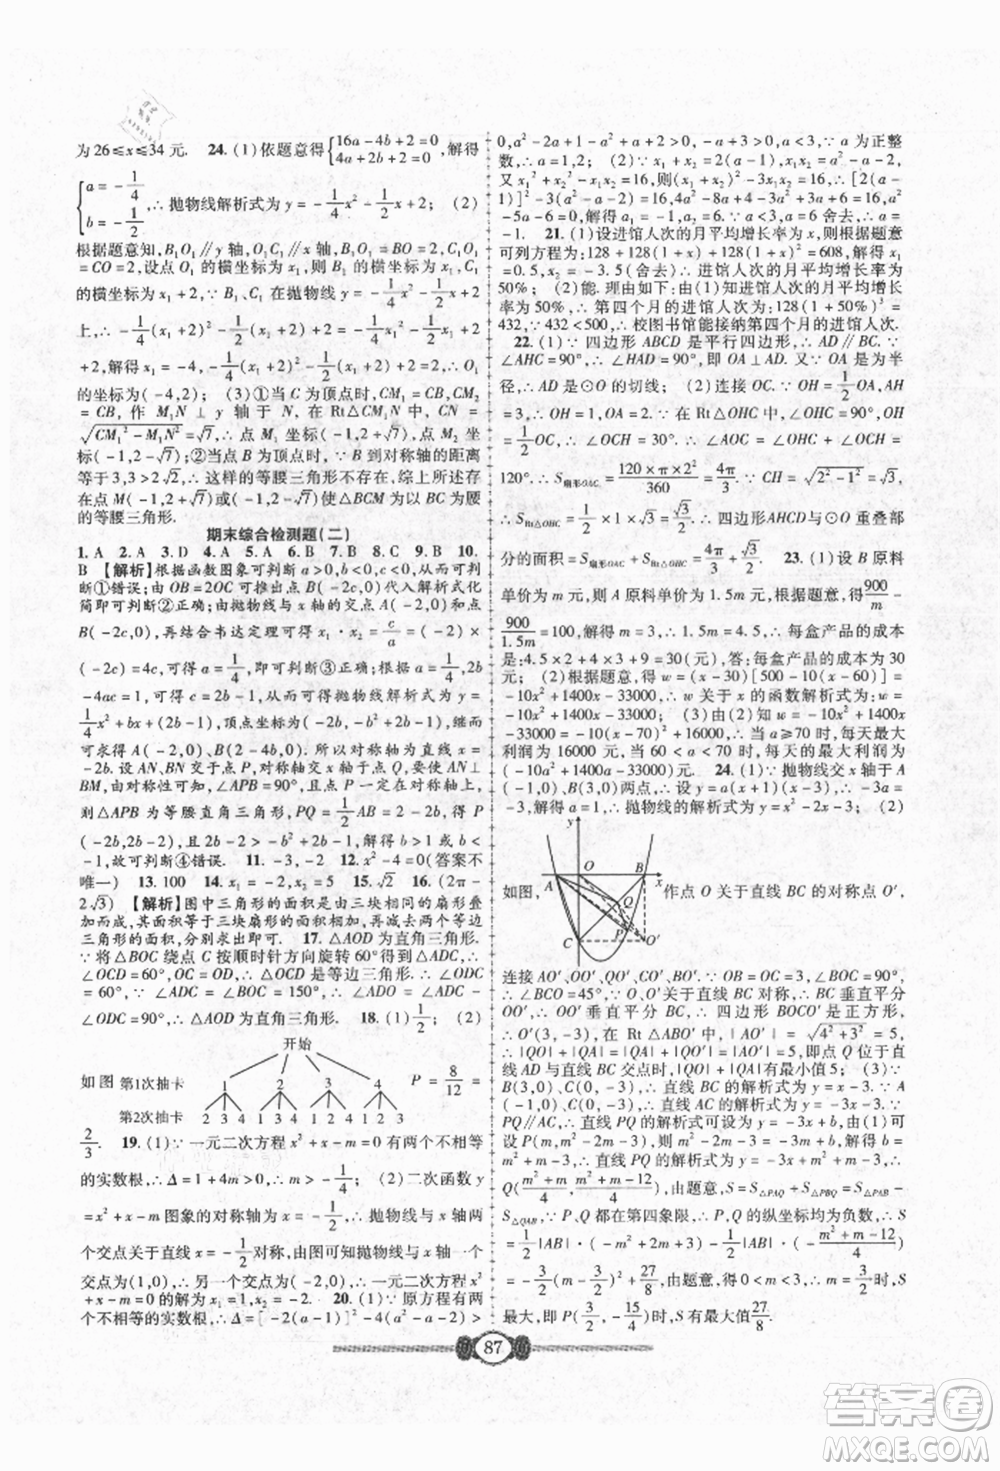 为26≤x≤34元. 24. (1)依题意得{16a-4b+2=0, 4a+2b+2=0, 解得
{a=-1/4, b=-1/2, ∴抛物线解析式为y=-1/4x²-1/2x+2; (2)
根据题意知,B₁O₁∥y轴,O₁C∥x轴,B₁O₁=BO=2,O₁C=
CO=2,设点O₁的横坐标为x₁,则B₁的横坐标为x₁,点C
的横坐标为x₁+2,∵B₁,C在抛物线y=-1/4x²-1/2x+2
上,∴-1/4(x₁+2)²-1/2(x₁+2)+2+2=-1/4x₁²-1/2x₁
+2,解得x₁=-1,∴x₁+2=1,-1/4(x₁+2)²-1/2(x₁+2)
解得B(-4,2); (3)①当C为顶点时,CM₁=CM₂
=CB,作M₁N⊥y轴于N,在Rt△CM₁N中,CN=
√CM₁²-M₁N²=√7,∴点M₁坐标(-1,√7),点M₂坐标
(-1,-√7);②当B为顶点时,∵B到对称轴的距离
等于3,3>2√2,∴这样的等腰三角形不存在,综上所述存
在点M(-1,√7)或(-1,-√7)使△BCM为以BC为腰
的等腰三角形.
期末综合检测题(二)
1. A 2. A 3. D 4. A 5. A 6. B 7. B 8. C 9. B 10.
B 【解析】根据函数图象可判断a>0,b>0,c<0,即可判
断①错误,由OB=2OC可推出点B(-2c,0)代入解析式化
简即可判断②正确;由抛物线与x轴的交点A(-2,0)和点
B(-2c,0),再结合韦达定理可得x₁·x₂=c/a=(-2)×
(-2c)=4c,可得a=1/4,即可判断③正确;根据a=1/4,2b
-4ac=1,可得c=2b-1,则可得抛物线解析式为y=
1/4x²+bx+2b-1,顶点坐标为(-2b,-b²+2b-1),继而
可求得A(-2,0),B(2-4b,0),所以对称轴为直线x=-
2b.要使AN⊥BM,由对称性可知,∠APB=90°,且点P一定在对称轴上,则
△APB为等腰直角三角形,PQ=1/2AB=2-2b,得P
(-2b,2b-2),且2b-2>-b²+2b-1,解得b>1或b<
-1,故可判断④错误. 11. -3,-2 12. x²-4=0(答案不
唯一) 13. 100 14. x₁=-2,x₂=5 15. 2√3 16. (2π-
2√3) 【解析】图中三角形的面积是由三块相同的扇形叠
加而成,其面积等于三块扇形的面积相加,再减去两个等
边三角形的面积,分别求出即可. 17. △AOD为直角三角形.
∵将△BOC绕点C按顺时针方向旋转60°得到△ADC,
∴∠OCD=60°,CO=CD,∴△OCD是等边三角形,∴∠ODC
=60°,∴∠ADC=∠BOC=150°,∴∠ADO=∠ADC-
∠ODC=90°,∴△AOD为直角三角形. 18. (1)1/2; (2)
开始
如图 第1次抽卡 1 2 3 4 P=8/12=
第2次抽卡 2 3 4 1 3 4 1 2 4 1 2 3
2/3. 19. (1)∵一元二次方程x²+x-m=0有两个不相等
的实数根,∴Δ=1+4m>0,∴m>-1/4; (2)二次函数y
=x²+x-m图象的对称轴为x=-1/2,∴抛物线与x轴两
个交点关于直线x=-1/2对称,由图可知抛物线与x轴一个
交点为(1,0),∴另一个交点为(-2,0),∴一元二次方程x²
+x-m=0的解为x₁=1,x₂=-2. 20. (1)∵原方程有两
个不相等的实数根,∴Δ=[-2(a-1)]²-4(a²-a-2)>
0,a²-2a+1-a²+a+2>0,∴-a+3>0,∴a<3,∵a为正整
数,∴a=1,2; (2)∵x₁+x₂=2(a-1),x₁x₂=a²-a-2,
又x₁²+x₂²-x₁x₂=16,∴(x₁+x₂)²-3x₁x₂=16,∴[2(a-
1)]²-3(a²-a-2)=16,4a²-8a+4-3a²+3a+6=16,∴a²
-5a-6=0,解得a₁=-1,a₂=6,∵a<3,∴a₂=6舍去,∴a
=-1. 21. (1)设进馆人次的月平均增长率为x,则根据题意
可列方程为:128+128(1+x)+128(1+x)²=608,解得x₁
=0.5,x₂=-3.5(舍去),∴进馆人次的月平均增长率为
50%; (2)能.理由如下:由(1)知进馆人次的月平均增长
率为50%,∴第四个月的进馆人次为:128(1+50%)³=
432,∵432<500,∴校图书馆能接纳第四个月的进馆人次.
22. (1)∵四边形ABCD是平行四边形,∴AD∥BC.∵
∠AHC=90°,∴∠HAD=90°,即OA⊥AD,又∵OA为半
径,∴AD是⊙O的切线; (2)连接OC,∵OH=1/2OA,OA
=2,∴OH=1,AH=1+2=3,在Rt△OHC中,∠OHC=90°,OH=
1/2OC,∴∠OCH=30°,∴∠AOC=∠OHC+∠OCH=
120°,∴S扇形OAC=120×π×2²/360=4π/3,∵CH=√2²-1²=√3,
∴SRt△OHC=1/2×1×√3=√3/2,∴四边形AHCD与⊙O重叠部
分的面积=S扇形OAC+SRt△OHC=4π/3+√3/2. 23. (1)设B原料
单价为m元,则A原料单价为1.5m元,根据题意,得900/m-
900/1.5m=100,解得m=3,∴1.5m=4.5,∴每盒产品的成本
是:4.5×2+4×3+9=30(元),答:每盒产品的成本为30
元; (2)根据题意,得w=(x-30)[500-10(x-60)]=
-10x²+1400x-33000,∴w关于x的函数解析式为:w=
-10x²+1400x-33000; (3)由(2)知w=-10x²+1400x
-33000=-10(x-70)²+16000,∴当a≥70时,每天最大
利润为16000元,当60<a<70时,每天的最大利润为
(-10a²+1400a-33000)元. 24. (1)∵抛物线交x轴于A
(-1,0),B(3,0)两点,∴设y=a(x+1)(x-3),∴-3a=
-3,解得a=1,∴抛物线的解析式为y=x²-2x-3; (2)
y A O B x Q C P O′
如图, 作点O关于直线BC的对称点O′,
连接AO′,OO′,CO′,BO′,QO′,∵OB=OC=3,∠BOC=90°,
∴∠BCO=45°,∵O,O′关于直线BC对称,∴BC垂直平分
OO′,∴OO′垂直平分BC,∴四边形BOCO′是正方形,
∴O′(3,-3),在Rt△ABO′中,|AO′|=√4²+3²=5,
∵|QO′|=|QO|,∴|QA|+|QO|=|QA|+|QO′|≥
|AO′|=5,即点Q位于直线AO′与直线BC交点时,|QA|+|QO|有最小值5; (3)∵
B(3,0),C(0,-3),∴直线BC的解析式为y=x-3,∵A(-1,
0),C(0,-3),∴直线AC的解析式为y=-3x-3,∵
PQ∥AC,∴直线PQ的解析式可设为y=-3x+b,由(1)可
设P(m,m²-2m-3),代入直线PQ的解析式,可得b=m²
+m-3,∴直线PQ的解析式为y=-3x+m²+m-3,∴
Q(m²+m/4,m²+m-12/4),由题意,得S=S△PAQ+S△PBQ=S△PAB-
S△QAB,∵P,Q都在第四象限,∴P,Q的纵坐标均为负数,∴S
=1/2|AB|·(-m²+2m+3)-1/2|AB|·(-m²+m-12/4)=
-3/2(m-3/2)²+27/8,由题意,得0<m<3,∴m=3/2时,S
最大,即P(3/2,-15/4)时,S有最大值27/8.
87
答案圈
MXQE.COM